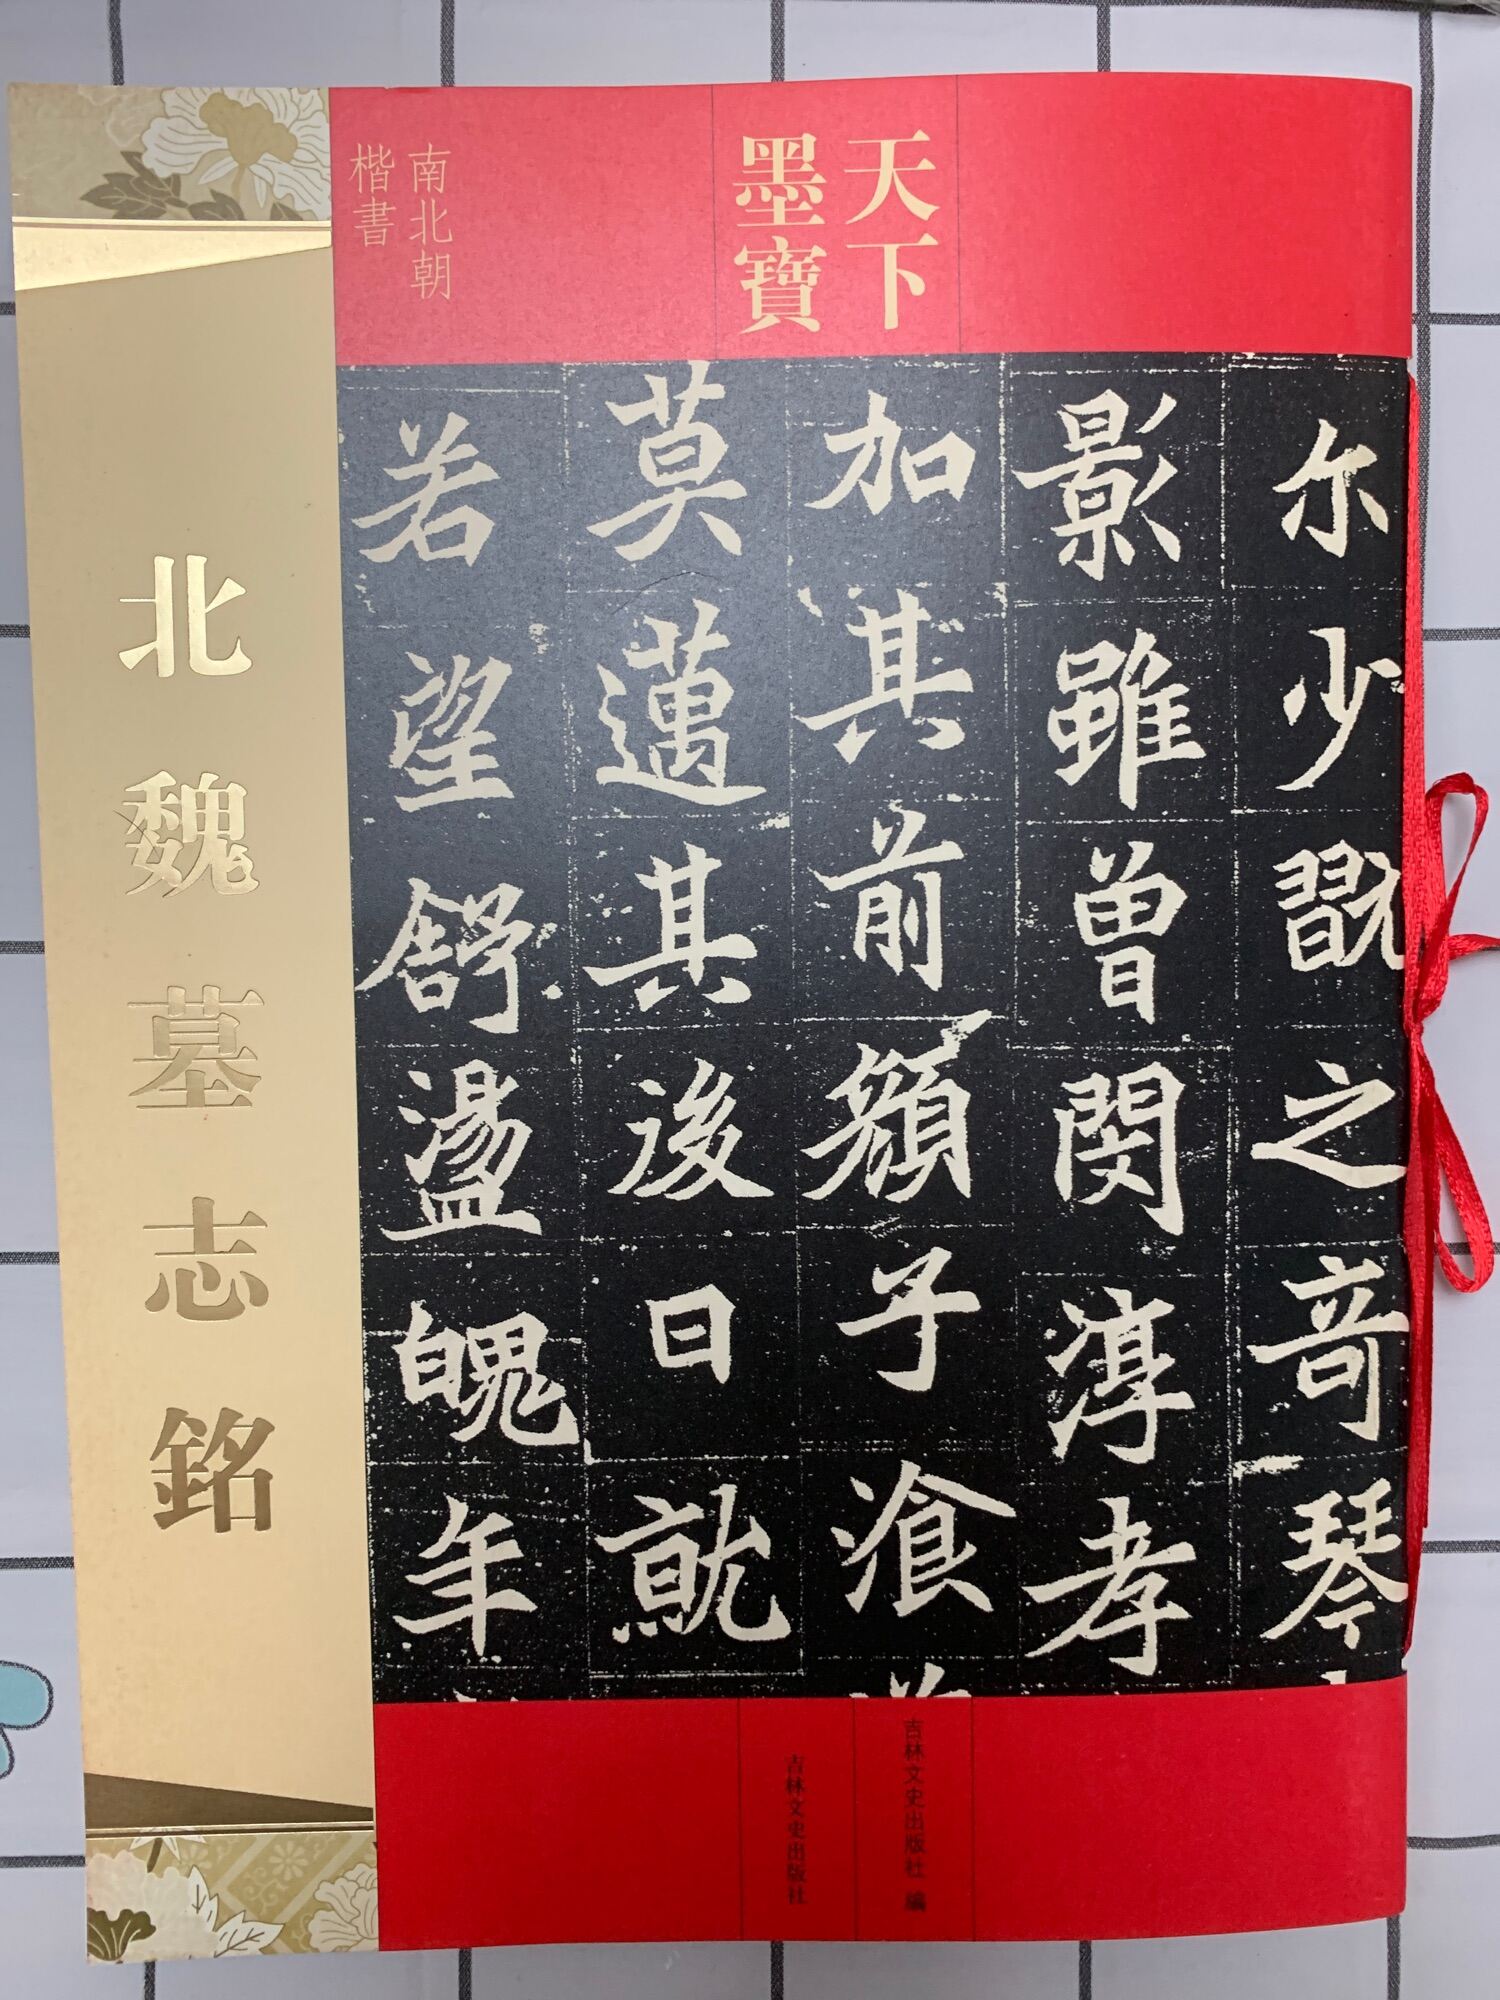 天下
墨寶
南北朝
楷書
尔少翫之竒琴
影雖曾閔淳孝
加其前顏子湌
莫邁其後日就
若望舒盪魄年
北魏墓志銘
吉林文史出版社 編
吉林文史出版社